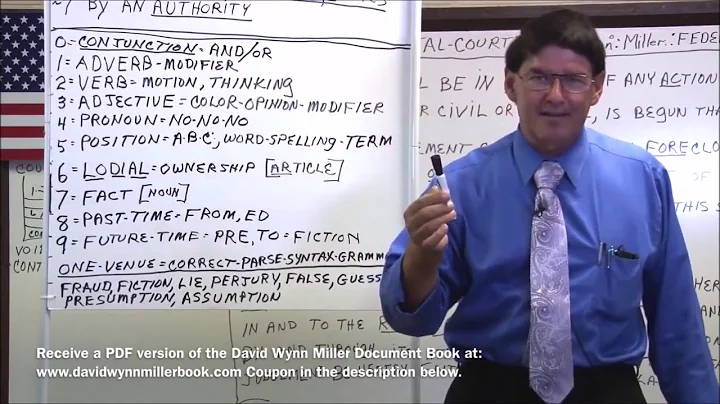 ~7 BY AN AUTHORITY
0=CONJUNCTION= AND/OR
1=ADVERB=MODIFIER
2=VERB=MOTION, THINKING
3=ADJECTIVE=COLOR-OPINION-MODIFIER
4=PRONOUN=NO-NO-NO
5=POSITION=A-B-C, WORD-SPELLING-TERM
6=LODIAL=OWNERSHIP [ARTICLE]
7=FACT [NOUN]
8=PAST-TIME=FROM, ED
9=FUTURE-TIME=PRE, TO=FICTION
ONE-VENUE=CORRECT-PARSE-SYNTAX-GRAMM
FRAUD, FICTION, LIE, PERJURY, FALSE, GUESS
PRESUMPTION, ASSUMPTION
AL-COURT
:Miller.:FEDE
L BE IN
F ANY ACTION
R CIVIL OR
, IS BEGUN THA
EMENT
FORECLO
OF
THIS S
COU
VO
CONT
HER
AND
IN AND TO THE R
Receive a PDF version of the David Wynn Miller Document Book at:
www.davidwynnmillerbook.com Coupon in the description below.